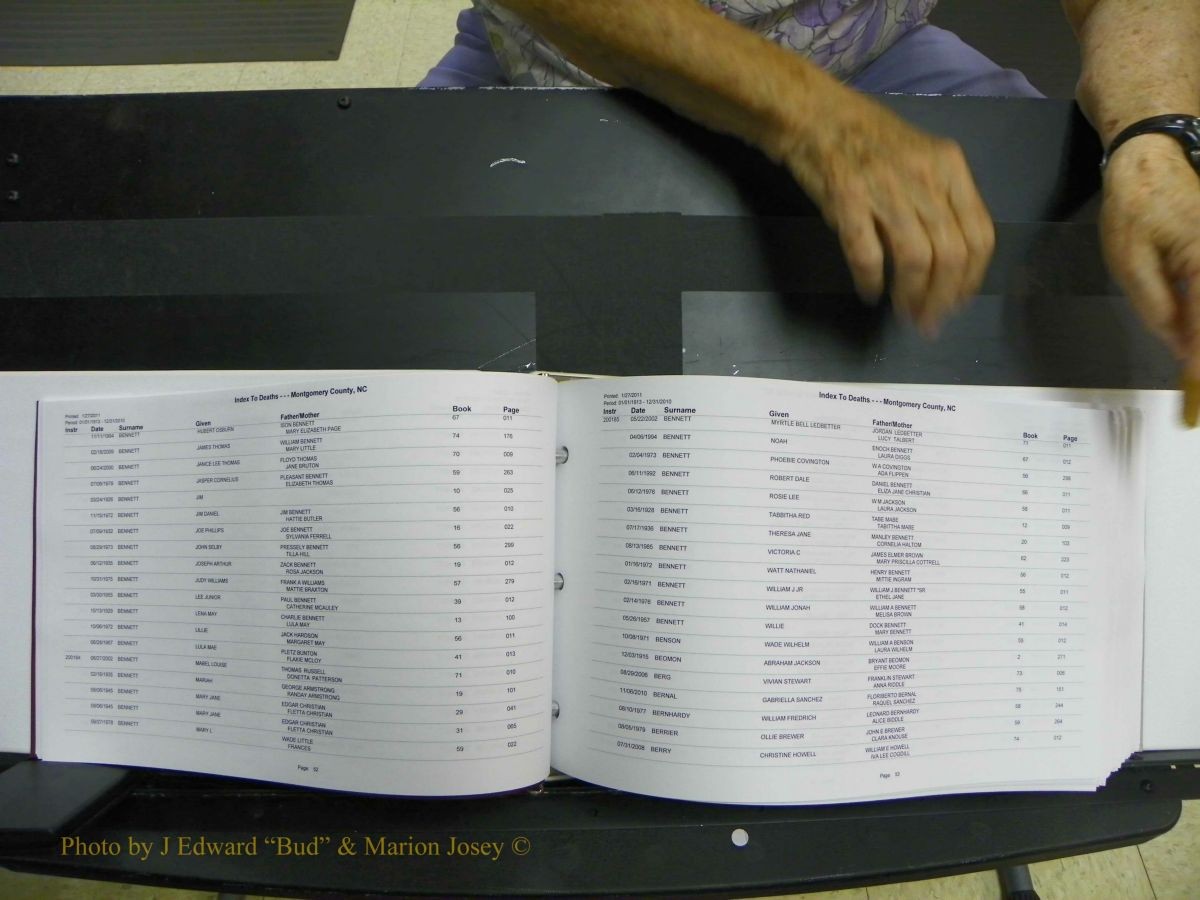 Index To Deaths - - - Montgomery County, NC
Printed: 1/27/2011
Period: 01/01/1913 - 12/31/2010
Instr Date Surname Given Father/Mother Book Page
11/11/1994 BENNETT HUBERT OSBURN ISON BENNETT 67 011
MARY ELIZABETH PAGE
02/18/2009 BENNETT JAMES THOMAS WILLIAM BENNETT 74 176
MARY LITTLE
BENNETT JANICE LEE THOMAS FLOYD THOMAS 70 009
JANE BRUTON
BENNETT JASPER CORNELIUS PLEASANT BENNETT 59 263
ELIZABETH THOMAS
BENNETT JIM 10 025
11/15/1972 BENNETT JIM DANIEL JIM BENNETT 56 010
HATTIE BUTLER
07/09/1932 BENNETT JOE PHILLIPS JOE BENNETT 16 022
SYLVANIA FERRELL
08/29/1973 BENNETT JOHN SELBY PRESSELY BENNETT 56 299
TILLA HILL
06/12/1935 BENNETT JOSEPH ARTHUR ZACK BENNETT 19 012
ROSA JACKSON
10/31/1975 BENNETT JUDY WILLIAMS FRANK A WILLIAMS 57 279
MATTIE BRAXTON
BENNETT LEE JUNIOR PAUL BENNETT 39 012
CATHERINE MCAULEY
BENNETT LENA MAY CHARLIE BENNETT 13 100
LULA MAY
10/06/1972 BENNETT LILLIE JACK HARDSON 56 011
MARGARET MAY
BENNETT LULA MAE PLETZ BUNTON 41 013
FLAKIE MCLOY
200184 06/27/2002 BENNETT MABEL LOUISE THOMAS RUSSELL 71 010
DONETTA PATTERSON
BENNETT MARIAH GEORGE ARMSTRONG 19 101
RANDAY ARMSTRONG
BENNETT MARY JANE EDGAR CHRISTIAN 29 041
FLETTA CHRISTIAN
BENNETT MARY JANE EDGAR CHRISTIAN 31 065
FLETTA CHRISTIAN
09/27/1978 BENNETT MARY L WADE LITTLE 59 022
FRANCES
Page 52
Index To Deaths - - - Montgomery County, NC
Printed: 1/27/2011
Period: 01/01/1913 - 12/31/2010
Instr Date Surname Given Father/Mother Book Page
200185 05/22/2002 BENNETT MYRTLE BELL LEDBETTER JORDAN LEDBETTER 71 011
LUCY TALBERT
04/06/1994 BENNETT NOAH ENOCH BENNETT 67 012
LAURA DIGGS
02/04/1973 BENNETT PHOEBIE COVINGTON W A COVINGTON 56 298
ADA FLIPPEN
06/11/1992 BENNETT ROBERT DALE DANIEL BENNETT 011
ELIZA JANE CHRISTIAN
06/12/1976 BENNETT ROSIE LEE W M JACKSON 58 011
LAURA JACKSON
03/16/1928 BENNETT TABBITHA RED TABE MABE 12 009
TABITTHA MABE
07/17/1936 BENNETT THERESA JANE MANLEY BENNETT 20 103
CORNELIA HALTOM
08/13/1985 BENNETT VICTORIA C JAMES ELMER BROWN 62 223
MARY PRISCILLA COTTRELL
01/16/1972 BENNETT WATT NATHANIEL HENRY BENNETT 56 012
MITTIE INGRAM
02/16/1971 BENNETT WILLIAM J JR WILLIAM J BENNETT *SR 55 011
ETHEL JANE
02/14/1976 BENNETT WILLIAM JONAH WILLIAM A BENNETT 58 012
MELISA BROWN
05/26/1957 BENNETT WILLIE DOCK BENNETT 41 014
MARY BENNETT
10/08/1971 BENSON WADE WILHELM WILLIAM A BENSON 55 012
LAURA WILHELM
12/03/1915 BEOMON ABRAHAM JACKSON BRYANT BEOMON 2 271
EFFIE MOORE
08/29/2006 BERG VIVIAN STEWART FRANKLIN STEWART 73 006
ANNA RIDDLE
11/06/2010 BERNAL GABRIELLA SANCHEZ FLORIBERTO BERNAL 75 161
RAQUEL SANCHEZ
08/10/1977 BERNHARDY WILLIAM FREDRICH LEONARD BERNHARDY 58 244
ALICE BIDDLE
08/05/1979 BERRIER OLLIE BREWER JOHN E BREWER 59 264
CLARA KNOUSE
07/31/2008 BERRY CHRISTINE HOWELL WILLIAM E HOWELL 74 012
IVA LEE COGDILL
Page 53
Photo by J Edward “Bud” & Marion Josey ©